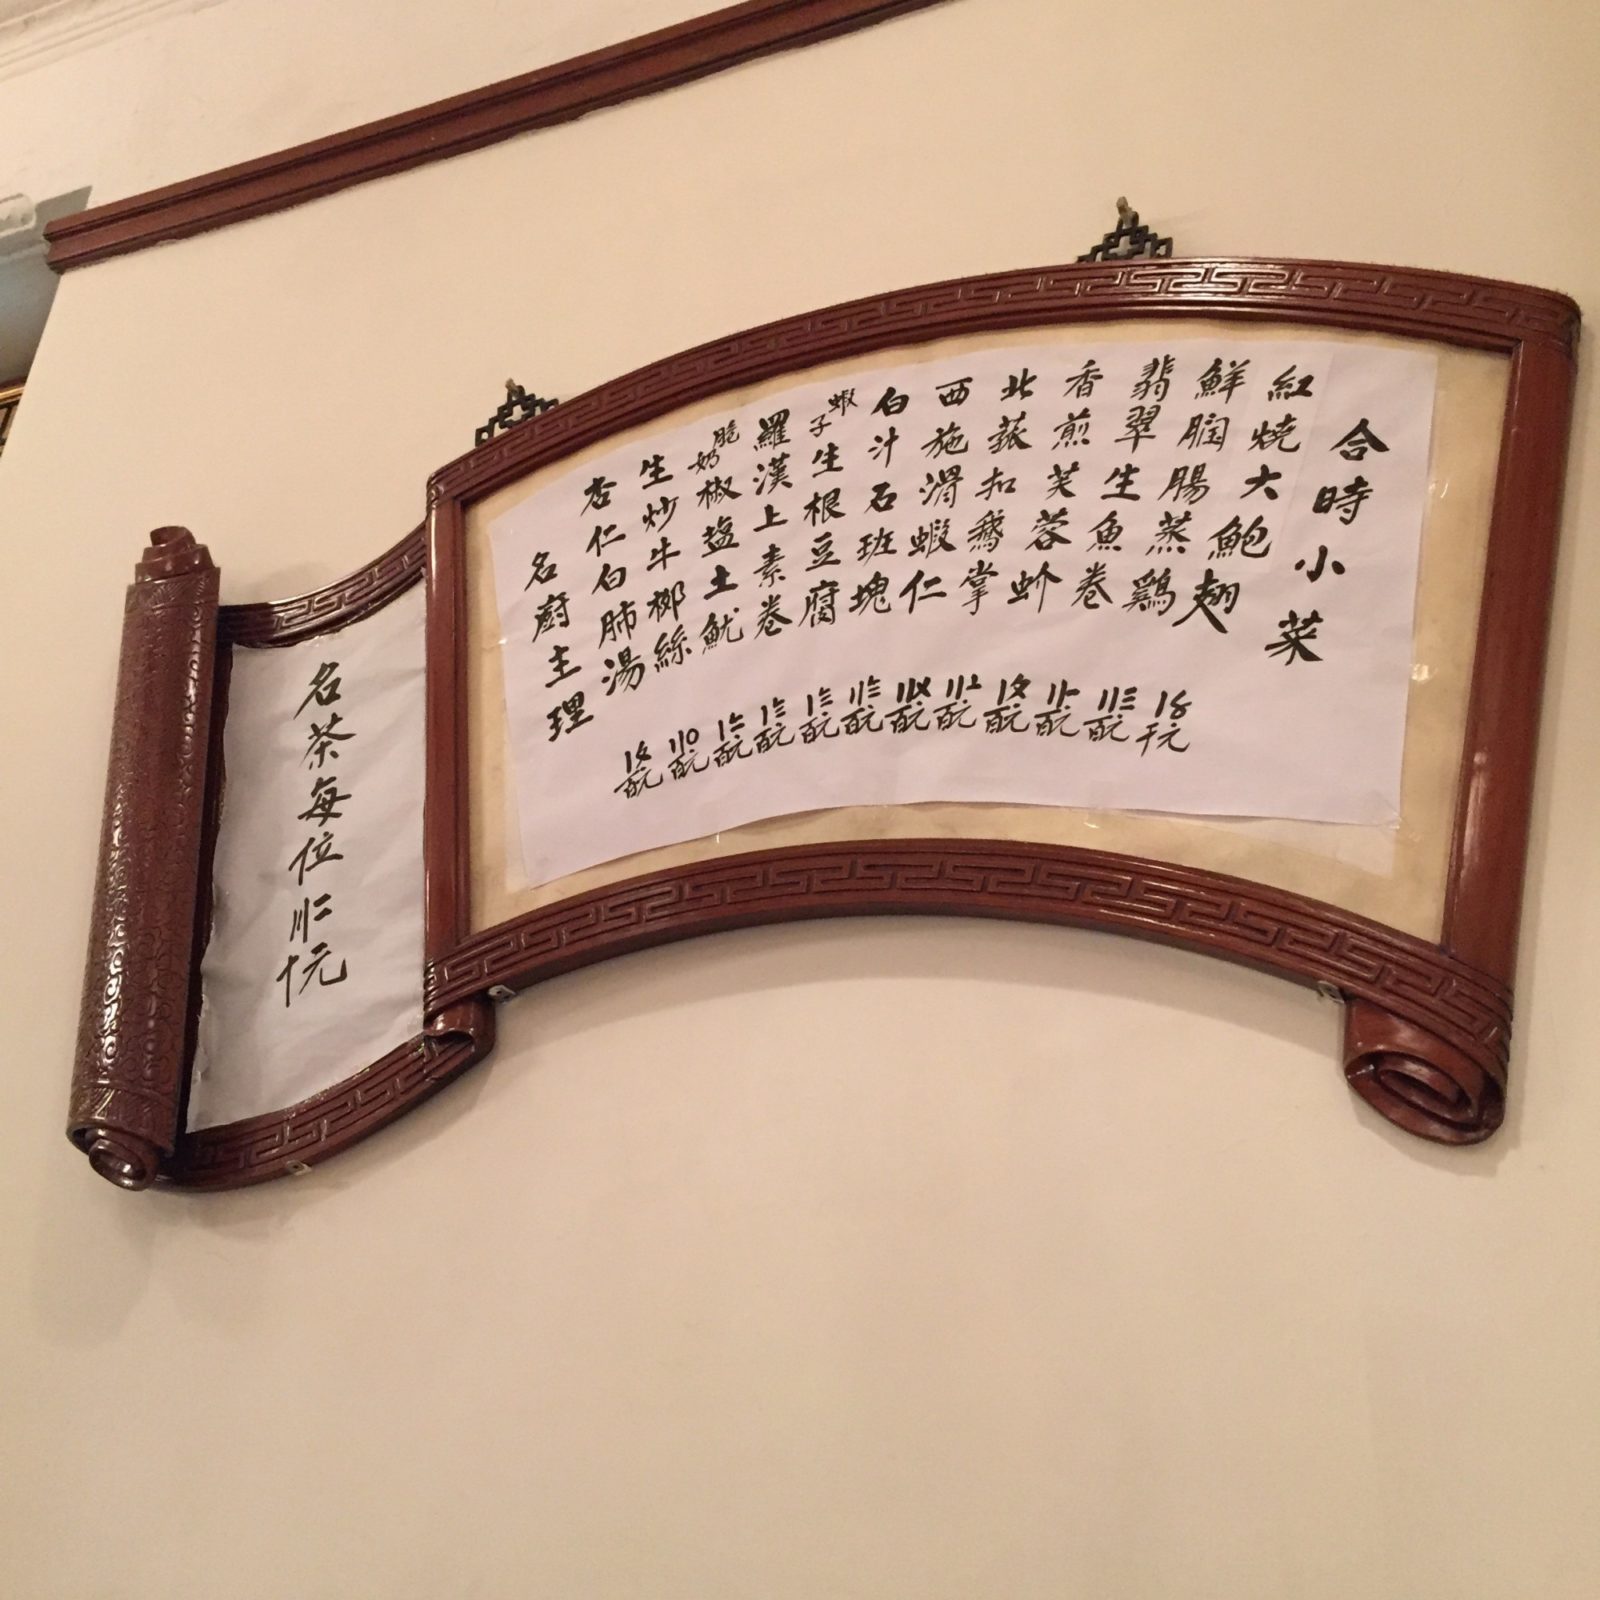 合時小菜
紅燒大鮑翅 〡〨千元
鮮膶腸蒸鷄
翡翠生魚卷
香煎芙蓉蚧
北菰扣鵝掌
西施滑蝦仁
白汁石班塊
蝦子生根豆腐
羅漢上素卷
脆奶椒盐土魷
生炒牛栁絲
杏仁白肺湯
名廚主理
名茶每位〣二十元